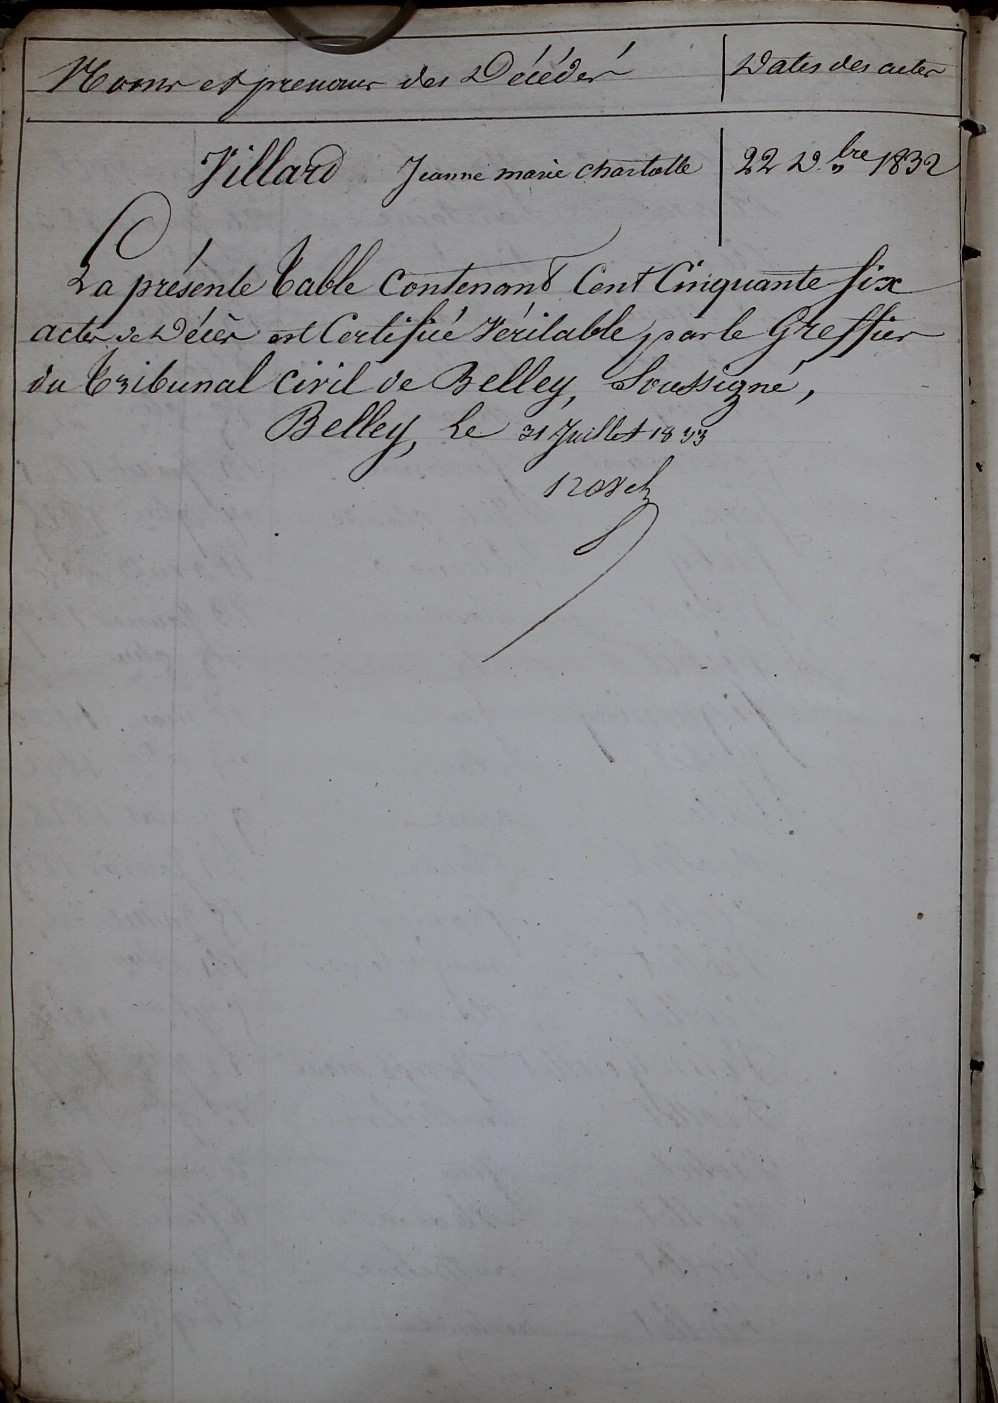 Noms et prenoms des Décédés Dates des actes
Villard Jeanne marie charlotte 22 D.bre 1832
La présente Table Contenant Cent Cinquante six
actes de Décès est Certifiée Véritable par le Greffier
du Tribunal Civil de Belley, Soussigné,
Belley, Le 31 Juillet 1833